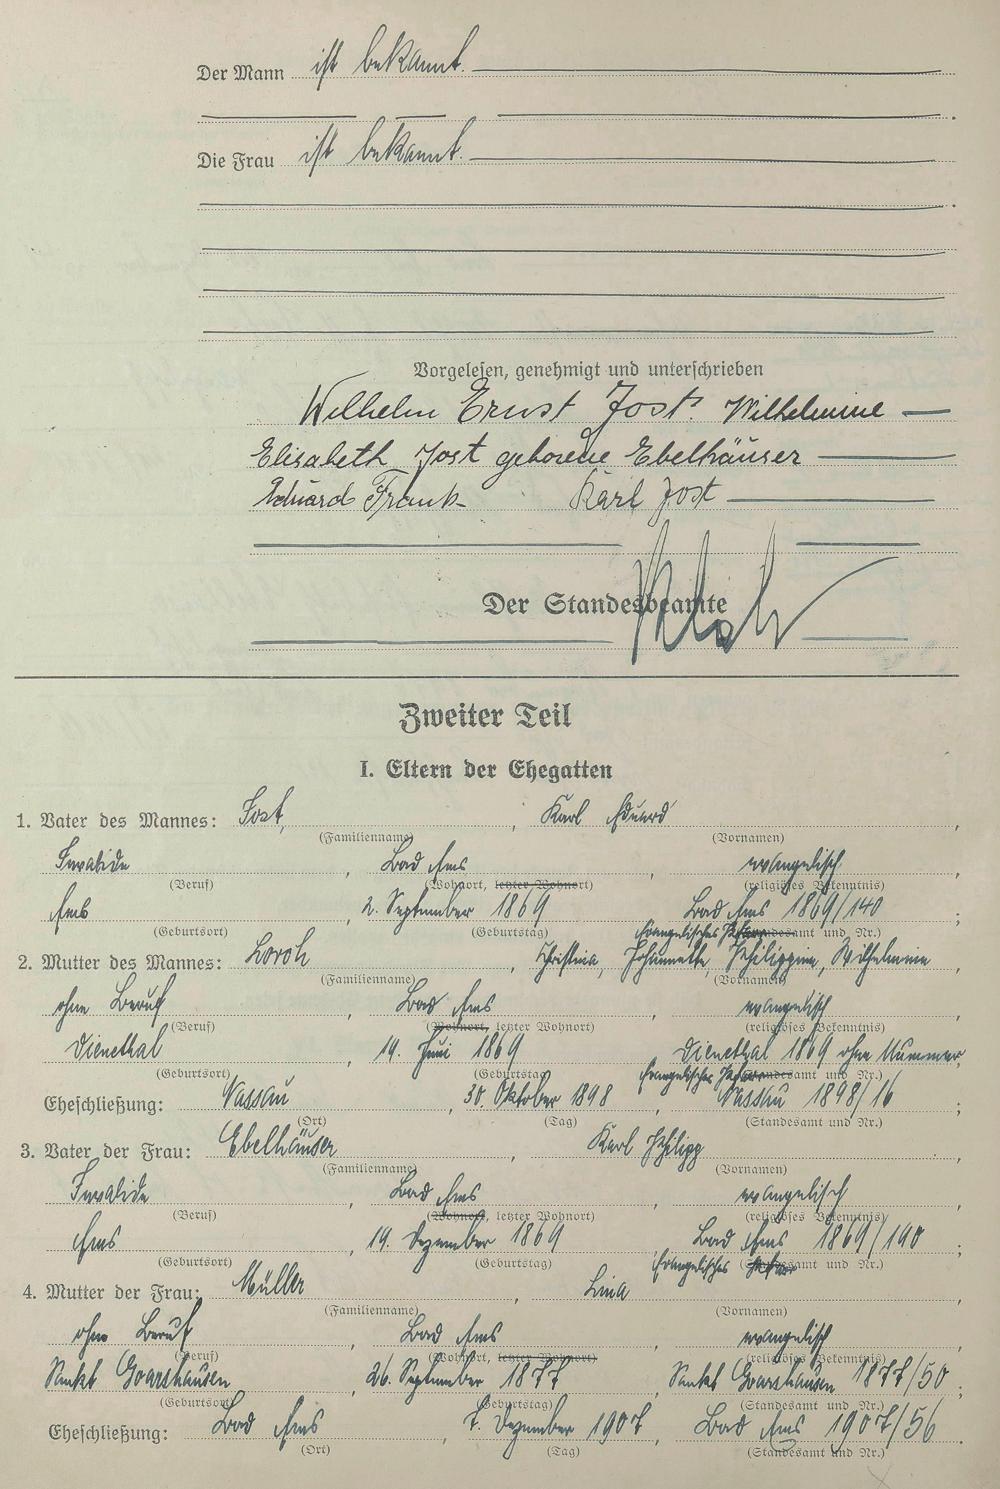 Der Mann ist bekannt.
Die Frau ist bekannt.
Vorgelesen, genehmigt und unterschrieben
Wilhelm Ernst Jost. Wilhelmine
Elisabeth Jost geborene Ebelhäuser
Eduard Frank Karl Jost
Der Standesbeamte
Zweiter Teil
I. Eltern der Ehegatten
1. Vater des Mannes: Jost, , Karl Eduard ,
(Familienname) (Vornamen)
Invalide , Bad Ems , evangelisch
(Beruf) (Wohnort, letzter Wohnort) (religiöses Bekenntnis)
Ems , 2. September 1869 Bad Ems 1869/140 ;
(Geburtsort) (Geburtstag) Evangelisches Pfarramt und Nr.)
2. Mutter des Mannes: Lorch , Christina, Johannette, Philippine, Wilhelmine
(Familienname) (Vornamen)
ohne Beruf , Bad Ems , evangelisch
(Beruf) (Wohnort, letzter Wohnort) (religiöses Bekenntnis)
Dienethal , 19. Juni 1869 Dienethal 1869 ohne Nummer,
(Geburtsort) (Geburtstag) Evangelisches Pfarramt und Nr.)
Eheschließung: Nassau , 30. Oktober 1898 , Nassau 1898/16 ;
(Ort) (Tag) (Standesamt und Nr.)
3. Vater der Frau: Ebelhäuser , Karl Philipp ,
(Familienname) (Vornamen)
Invalide , Bad Ems , evangelisch
(Beruf) (Wohnort, letzter Wohnort) (religiöses Bekenntnis)
Ems , 19. Dezember 1869 Bad Ems 1869/190 ;
(Geburtsort) (Geburtstag) Evangelisches Pfarramt und Nr.)
4. Mutter der Frau: Müller , Lina ,
(Familienname) (Vornamen)
ohne Beruf , Bad Ems , evangelisch
(Beruf) (Wohnort, letzter Wohnort) (religiöses Bekenntnis)
Sankt Goarshausen , 26. September 1877 , Sankt Goarshausen 1877/50 ;
(Geburtsort) (Geburtstag) (Standesamt und Nr.)
Eheschließung: Bad Ems , 7. Dezember 1907 , Bad Ems 1907/56 .
(Ort) (Tag) (Standesamt und Nr.)